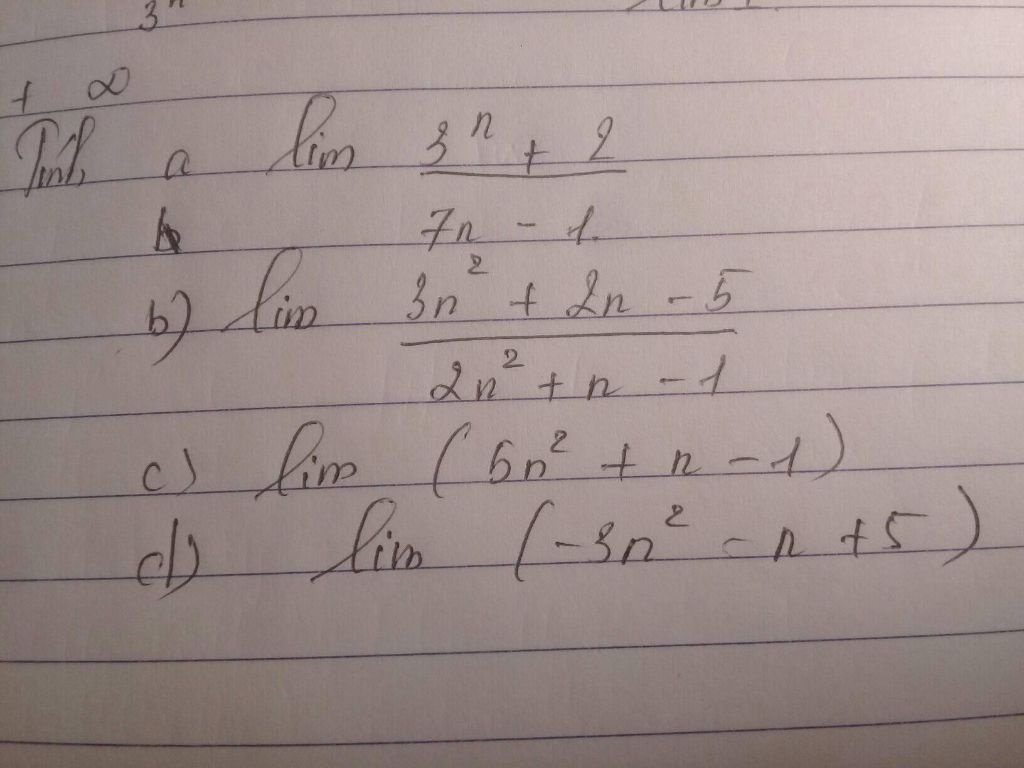 3ⁿ
+ ∞
Tính a lim (3ⁿ + 2)/(7n - 1)
b) lim (3n² + 2n - 5)/(2n² + n - 1)
c) lim (5n² + n - 1)
d) lim (-3n² - n + 5)